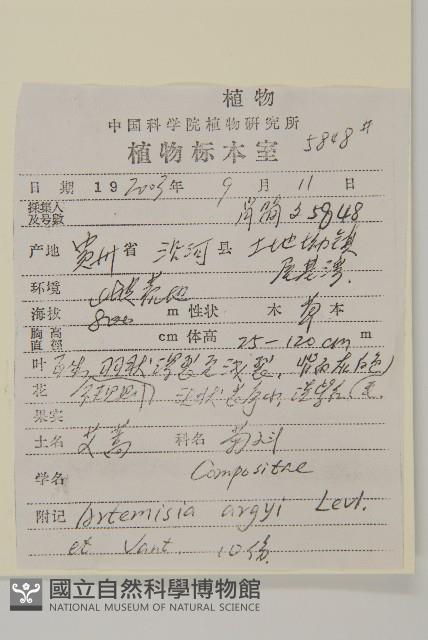 植物
中国科学院植物研究所
植物标本室 5848#
日 期 19 2003年 9 月 11 日
採集人及号数 简 5848
产地 贵州省 沿河县 土地坳镇
环境 山坡荒地
海拔 800 m 性状 木 草 本
胸高直徑 cm 体高 25-120cm m
叶 互生, 羽状深裂 浅裂,
花
果实
土名 艾蒿 科名 菊科
学名 Compositae
附记 Artemisia argyi Levl.
et Vant. 10份.
國立自然科學博物館
NATIONAL MUSEUM OF NATURAL SCIENCE